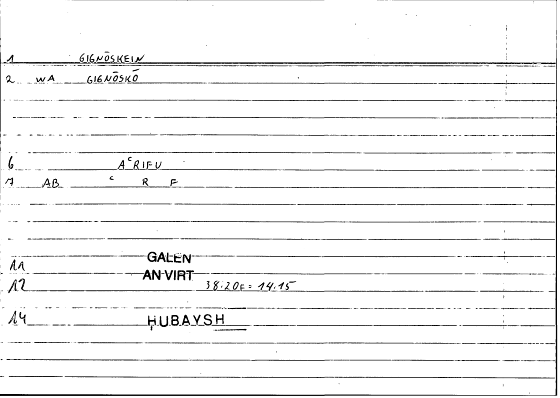 1 GIGNŌSKEIN
2 WA GIGNŌSKŌ
6 AᶜRIFU
7 AB ᶜ R F
11 GALEN
12 AN·VIRT 38.20f = 14.15
14 ḤUBAYSH